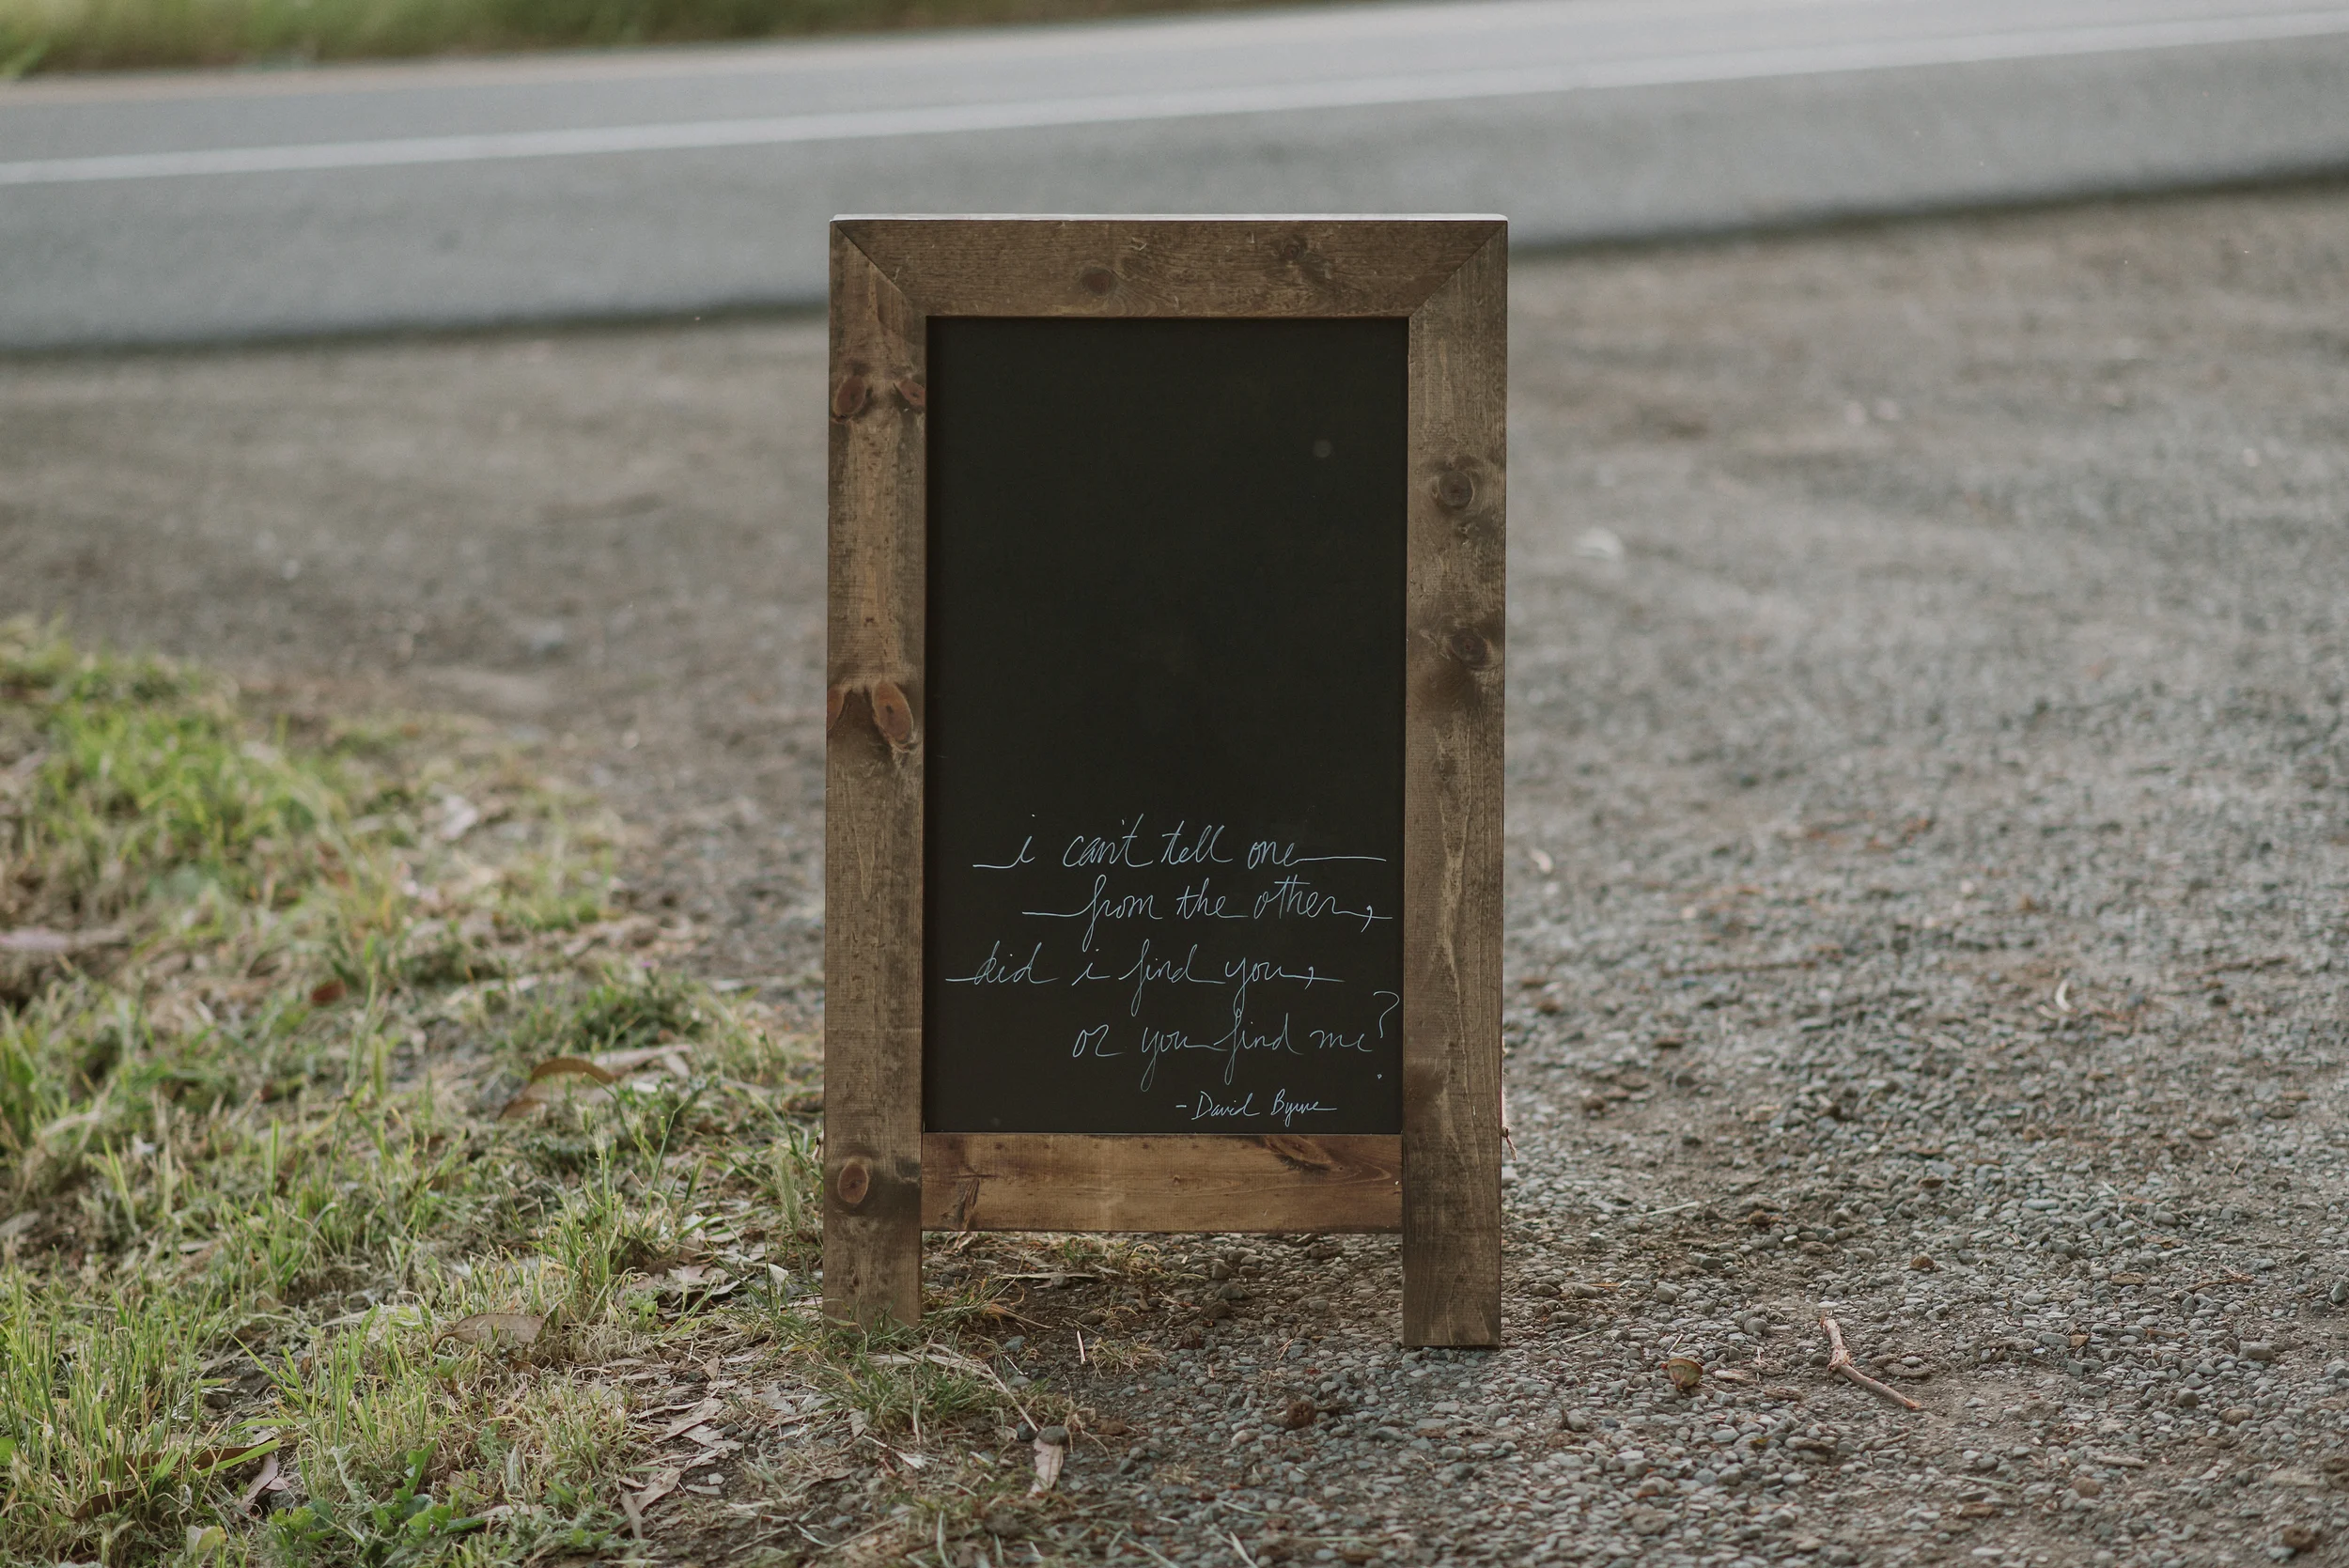 i can't tell one
from the other,
did i find you,
or you find me?
- David Byrne